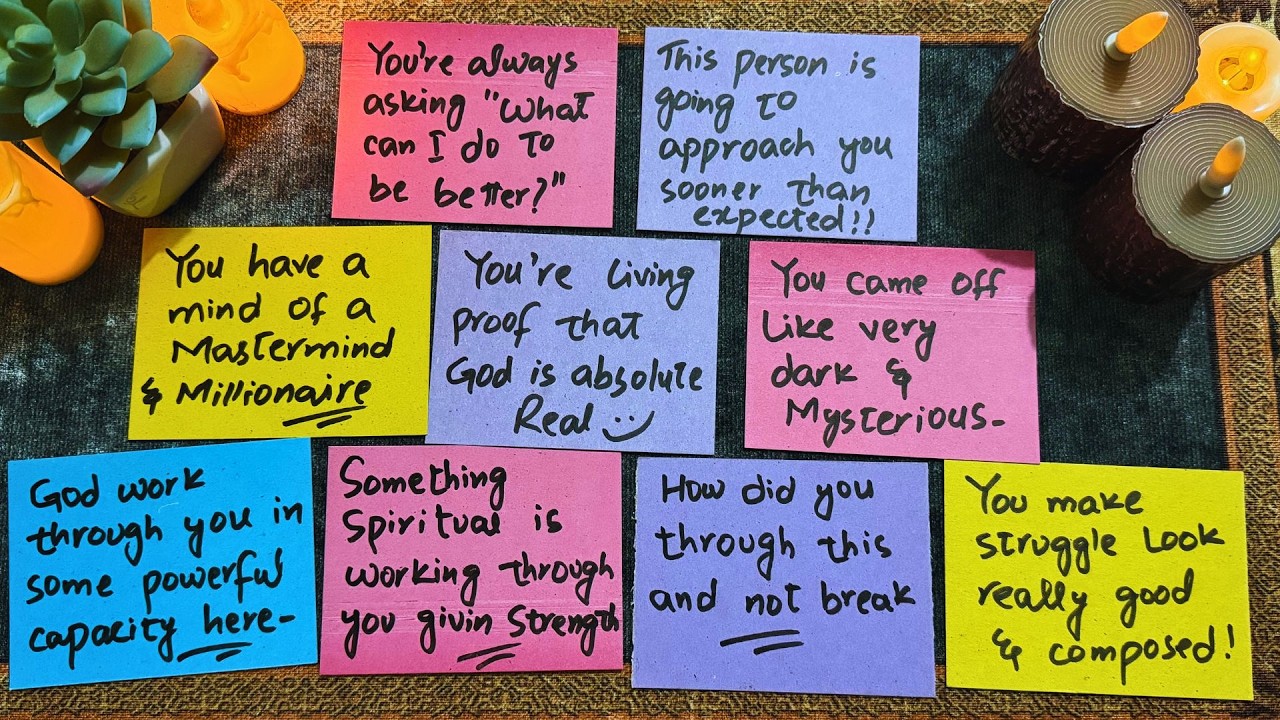 You're always
asking "What
can I do To
be better?"
This person is
going to
approach you
sooner than
expected!!
You have a
mind of a
Mastermind
& Millionaire
You're living
proof that
God is absolute
Real
You came off
like very
dark &
Mysterious-
God work
through you in
some powerful
capacity here-
Something
Spiritual is
working through
you givin Strength
How did you
through this
and not break
You make
struggle look
really good
& composed!